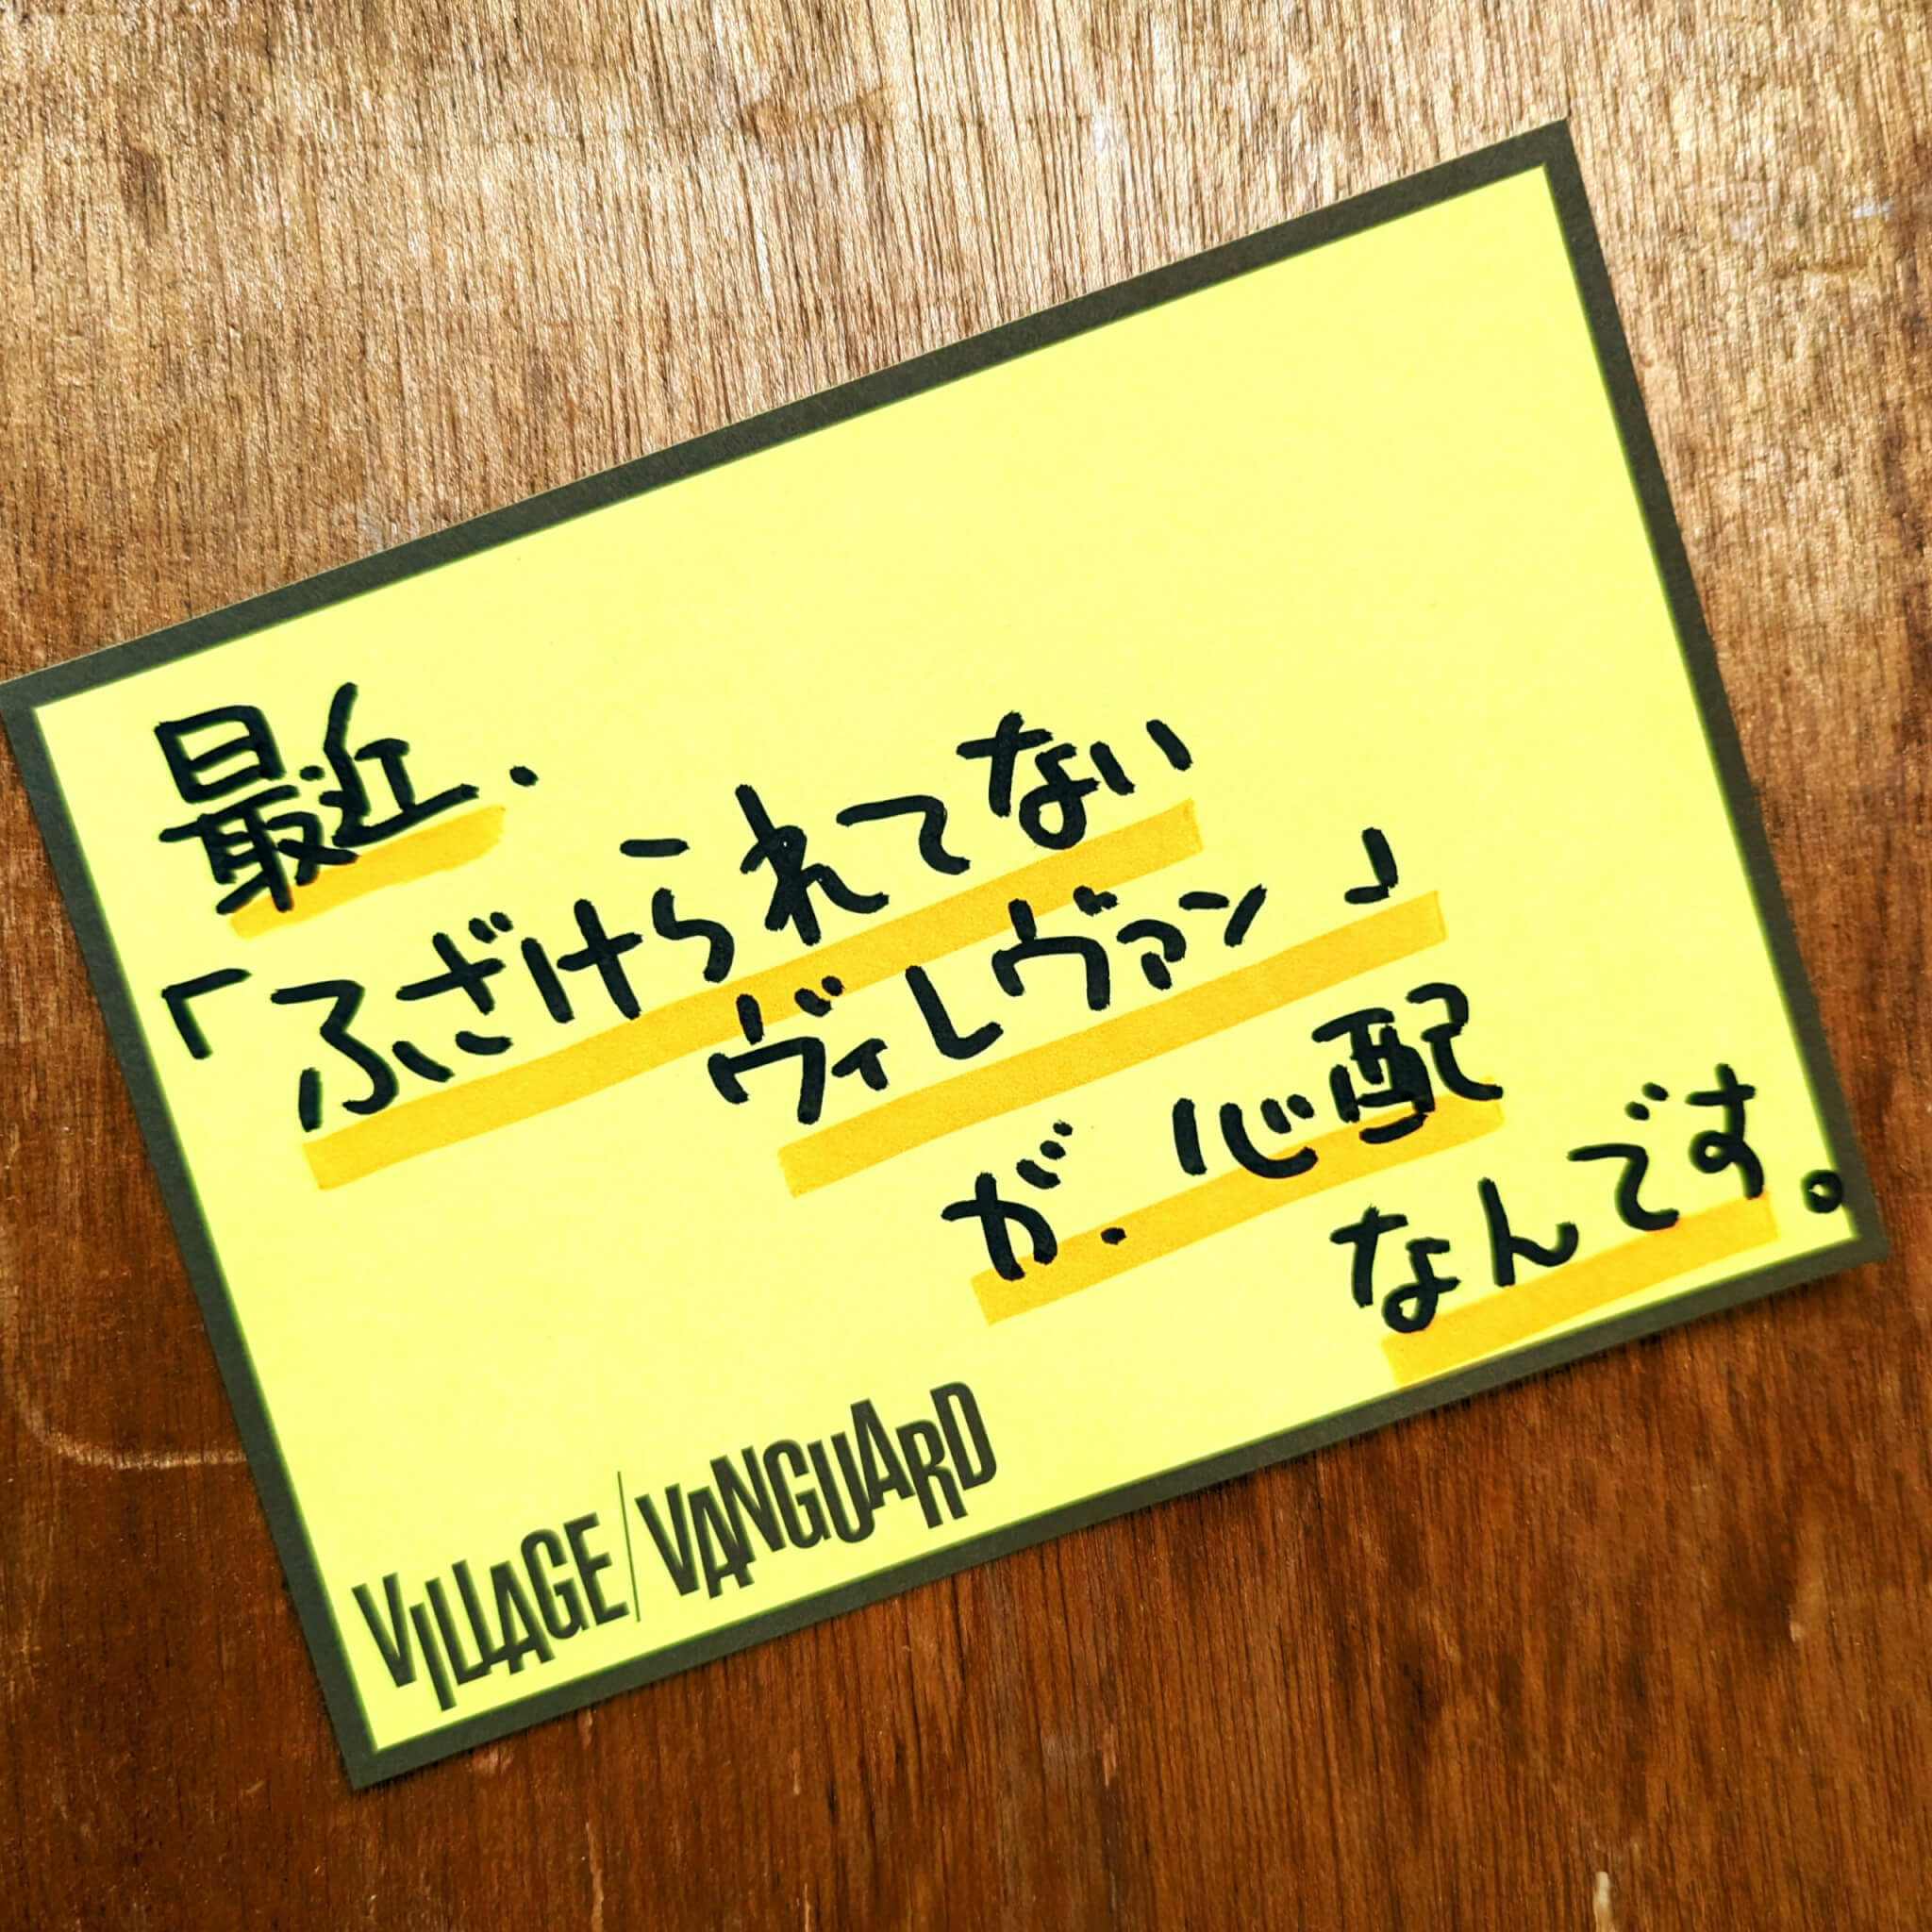 最近.
「ふざけられてない
ヴィレヴァン」
が.心配
なんです。
VILLAGE/VANGUARD